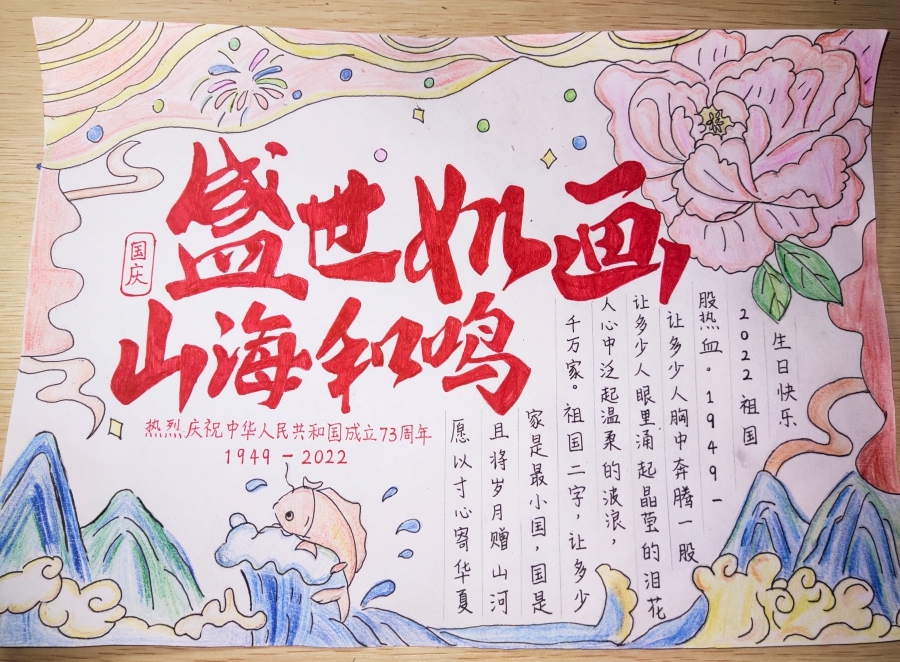 盛世如画,
国庆
山海和鸣
热烈庆祝中华人民共和国成立73周年
1949-2022
愿以寸心寄华夏
且将岁月赠山河
家是最小国,国是
千万家。祖国二字,让多少
人心中泛起温柔的波浪,
让多少人眼里涌起晶莹的泪花
让多少人胸中奔腾一股
股热血。1949-
2022祖国
生日快乐